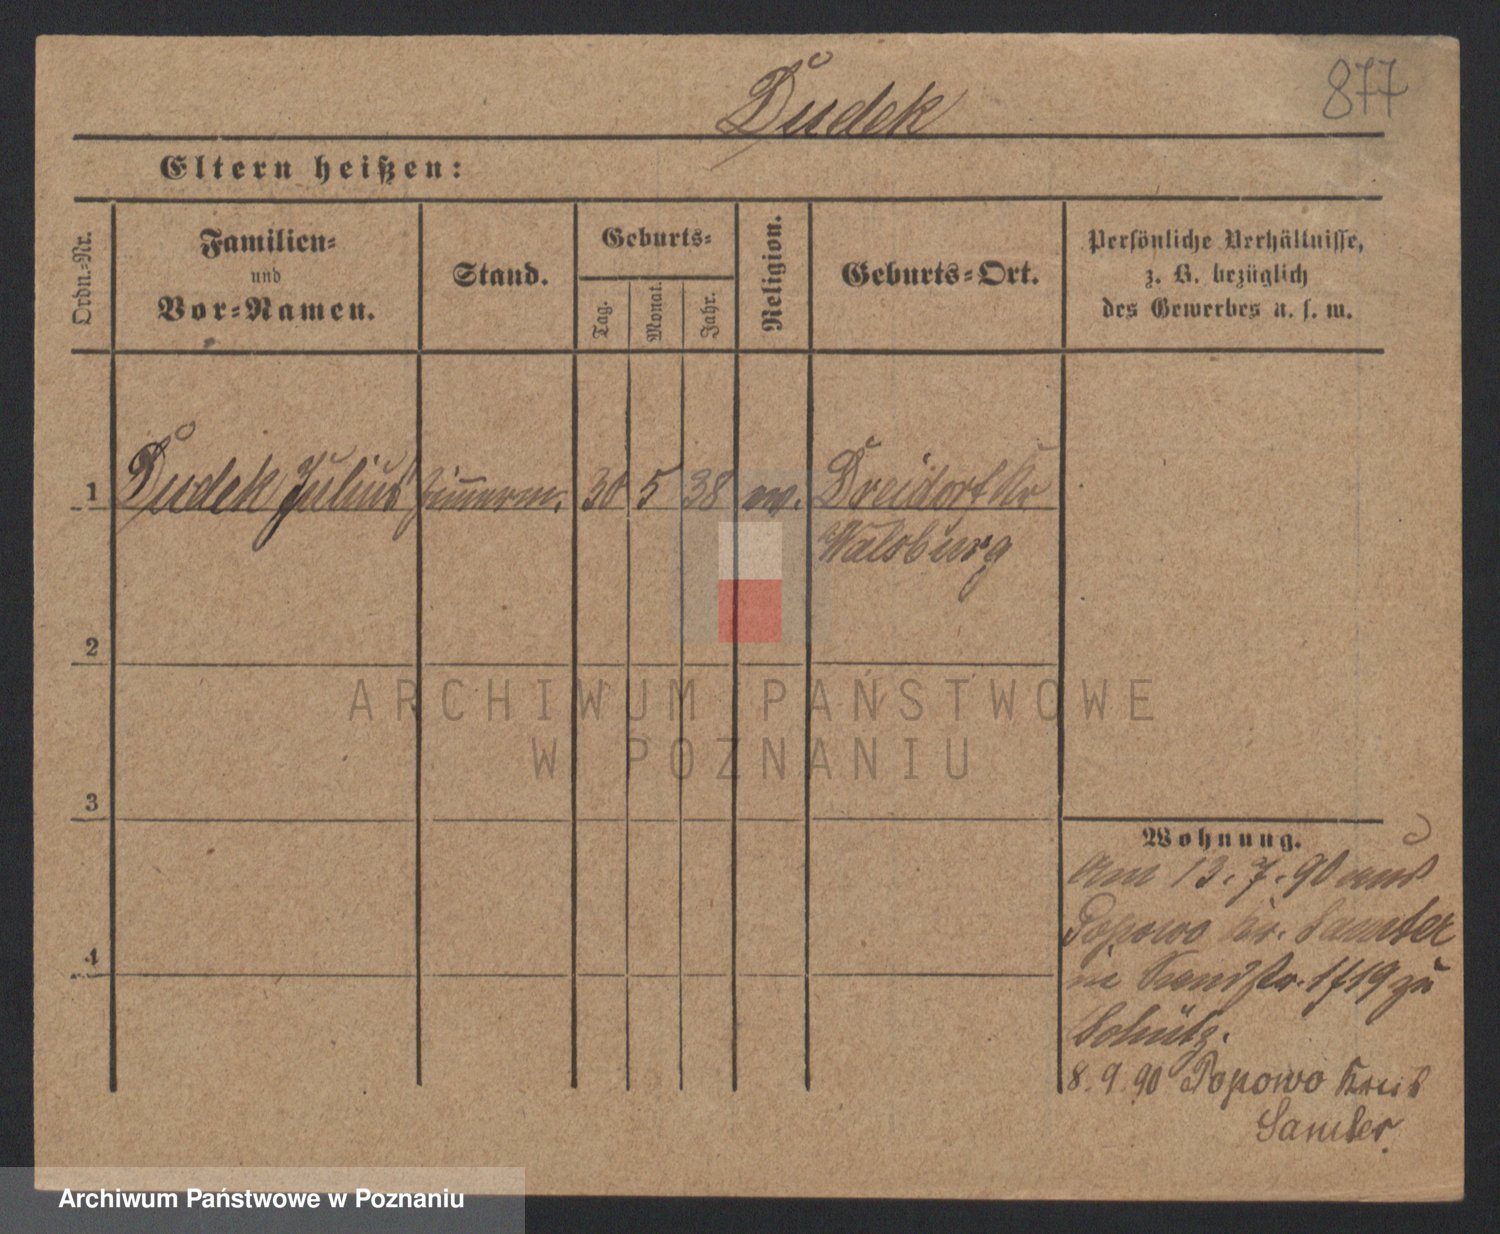 Dudek
877
Eltern heißen:
Ordn.-Nr.
Familien-
und
Vor-Namen.
Stand.
Geburts-
Tag.
Monat.
Jahr.
Religion.
Geburts-Ort.
Persönliche Verhältnisse,
z. B. bezüglich
des Gewerbes u. s. w.
1
Dudek Julius
Zimmerm.
30
5
38
ev.
Dreidorf Kr
2
3
4
Wohnung.
Am 13.7.90 aus
Popowo Kr. Samter
in 1/19 zu
Schütz.
8.9.90 Popowo Kreis
Samter.
ARCHIWUM PAŃSTWOWE
W POZNANIU
Archiwum Państwowe w Poznaniu